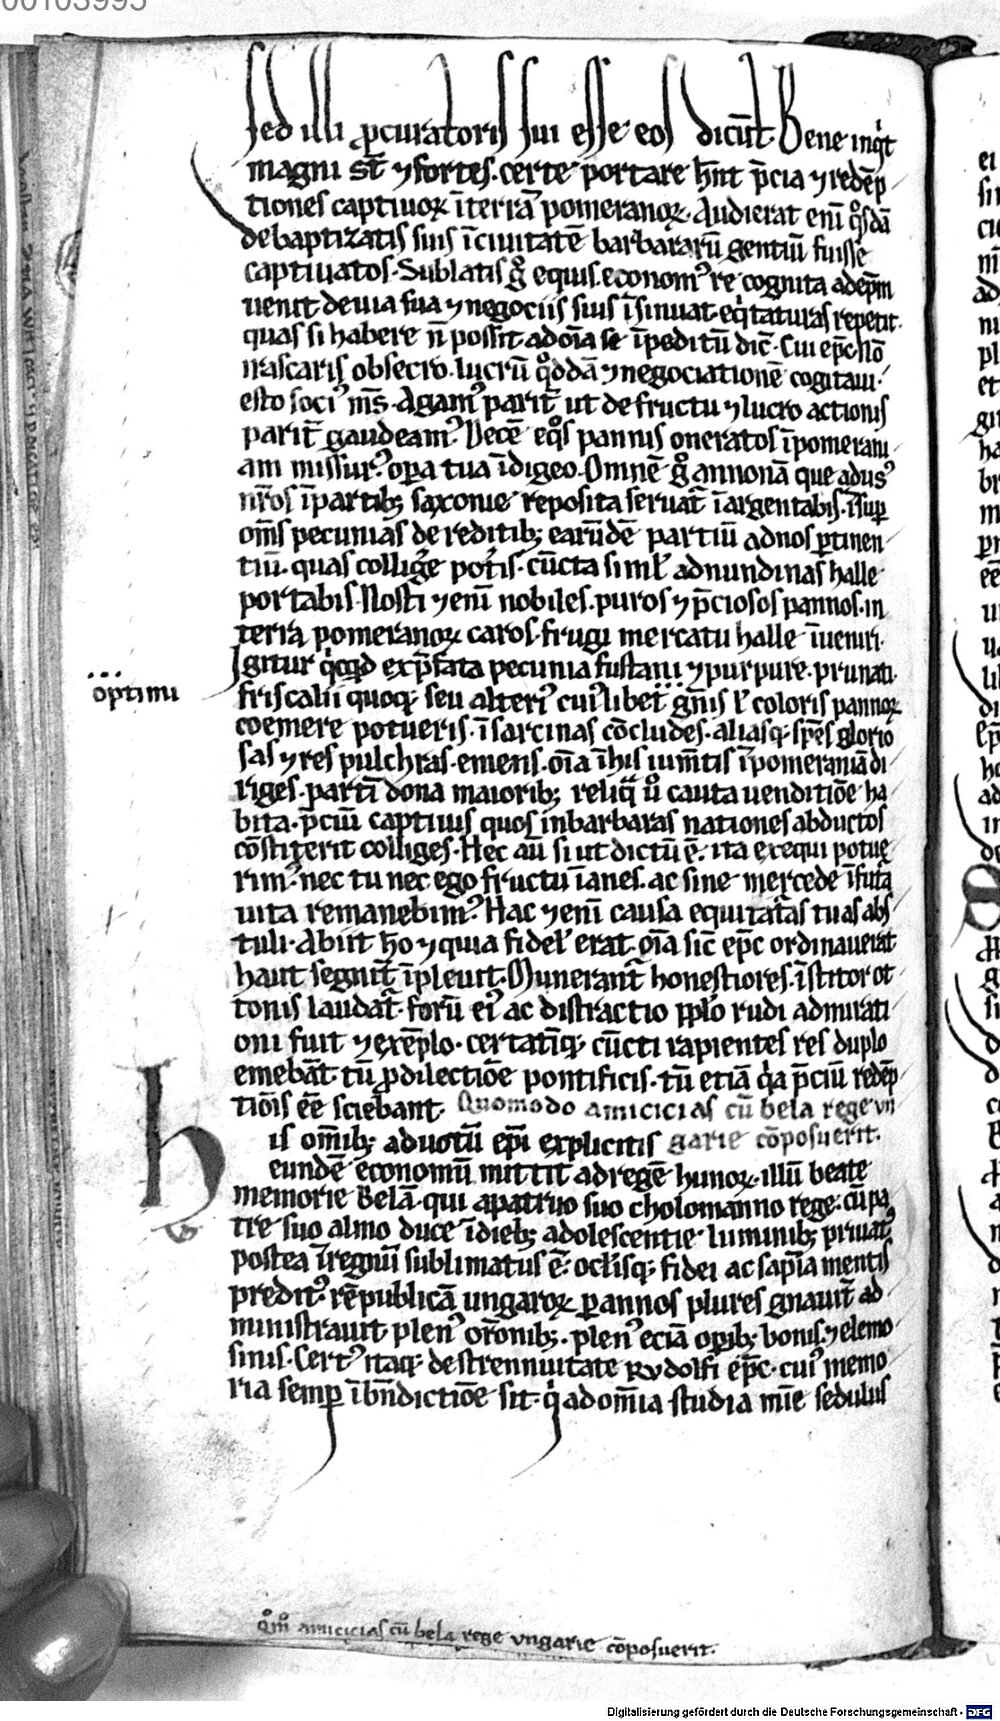 00103995
sed illi ꝓcuratoris sui esse eos dicūt. Bene inqͥt
magni st̄ ⁊ fortes. certe portare hn̄t p̄cia ⁊ redēp
tiones captiuoꝝ ī terrā pomeranoꝝ. Audierat enī qͦsdā
de baptizatis suis ī ciuitatē barbararū gentiū fuisse
captiuatos. Sublatis gͦ equis. economꝰ re cognita adep̄m
uenit de uia sua ⁊ negociis suis īsinuat. eqͥtaturas repetit.
quas si habere n̄ possit ad oīa se īpeditū dic̄. Cui ep̄c. Nō
irascaris obsecro. lucrū qͦddā ⁊ negociationē cogitaui.
esto sociꝰ mꝰs. Agamꝰ parit̄ ut de fructu ⁊ lucro actionis
parit̄ gaudeamꝰ. Decē eqͦs pannis oneratos ī pomerani
am missurꝰ. oꝑa tua īdigeo. Omnē gͦ annonā que ad usꝰ
nr̄os ī partibꝫ saxonie reposita seruat̄ ī argentabis. īsuꝑ
om̄s pecunias de reditibꝫ earūdē partiū ad nos ꝑtinen
tiū. quas collige͛ potis. cūcta simł ad nundinas halle
portabis. Nosti ⁊ enī nobiles. puros ⁊ p̄ciosos pannos. in
terra pomeranoꝝ caros. frugi mercatu halle īueniri.
Igitur qͥcqͥd ex p̄fata pecunia fustani ⁊ purpure. prunati.
friscalii quoqꝫ seu alteriꝰ cuiꝰlibet gn̄is ł coloris pannoꝝ
optimi
coemere potueris. ī sarcinas cōcludes. aliasqꝫ spēs glorio
sas ⁊ res pulchras emens. oīa ī his iumtis ī pomeraniā di
riges. partī dona maioribꝫ reliqͣ ū cauta uenditiōe ha
bita. p̄ciū captiuis quos in barbaras nationes abductos
cōstiterit colliges. Hec aū si ut dictū ē. ita exequi potue
rimꝰ. nec tu nec ego fructu īanes. ac sine mercede ī futa
uita remanebimꝰ. Hac ⁊ enī causa equitatͣas tuas abs
tuli. Abiit hō ⁊ quia fidelꝰ erat. oīa sic̄ ep̄c ordinauerat
haut segnit̄ īpleuit. Munerant̄ honestiores. īstitor ot
tonis laudat̄. forū eiꝰ ac distractio ꝓplo rudi admirati
oni fuit ⁊ exēplo. certatīqꝫ cūcti rapientes res duplo
emebāt. tū ꝓ dilectiōe pontificis. tū etiā qͥa p̄ciū redēp
tiōis ēē sciebant. Quomodo amicicias cū bela rege vn
garie cōposuerit.
his om̄ibꝫ ad uotū ep̄i explicitis
eundē economū mittit ad regē hunoꝝ. illū beate
memorie Belā. qui a patruo suo cholomanno rege. cū pa
tre suo almo duce ī diebꝫ adolescentie luminibꝫ priuatꝰ
postea ī regnū sublimatus ē. oclīsqꝫ fidei ac sapīa mentis
preditꝰ. rēpublicā ungaroꝝ ꝑ annos plures gnauit̄ ad
ministrauit plenꝰ or̄onibꝫ. plenꝰ eciā oꝑibꝫ bonis. ⁊ elemo
sinis. Certꝰ itaqꝫ de strennuitate Rvdolfi ep̄c. cuiꝰ memo
ria semꝑ ī bn̄dictiōe sit. qͥ ad om̄ia studia mīe sedulus
qͦmͦ amicicias cū bela rege vngarie cōposuerit.
Digitalisierung gefördert durch die Deutsche Forschungsgemeinschaft - DFG